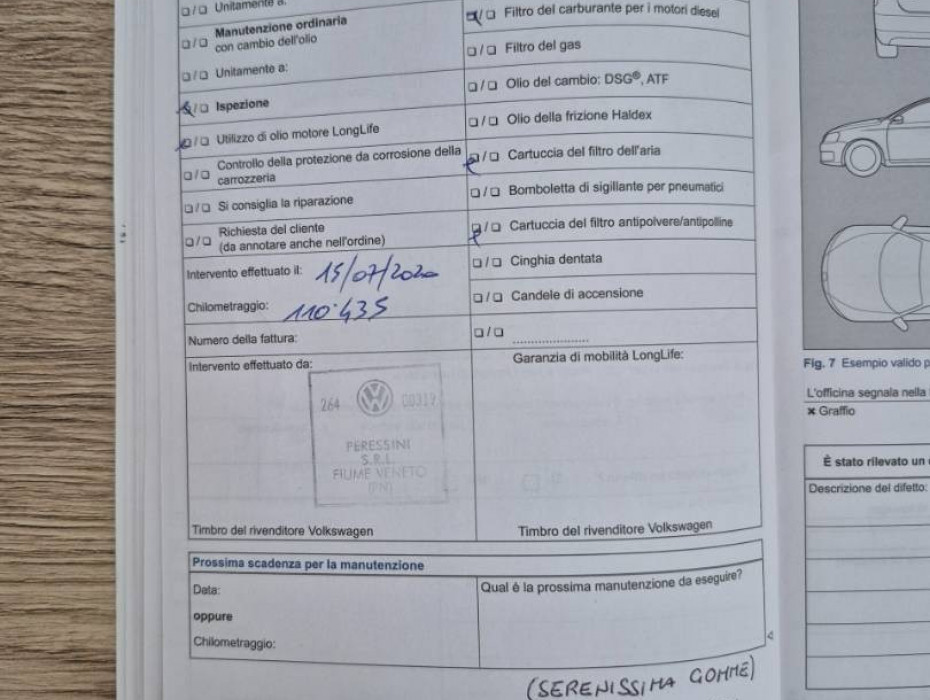 ❏/❏ Unitamente a:
❏/❏ Manutenzione ordinaria
con cambio dell'olio
❏/❏ Unitamente a:
❏/❏ Ispezione
❏/❏ Utilizzo di olio motore LongLife
❏/❏ Controllo della protezione da corrosione della
carrozzeria
❏/❏ Si consiglia la riparazione
❏/❏ Richiesta del cliente
(da annotare anche nell'ordine)
Intervento effettuato il: 15/07/2020
Chilometraggio: 110.435
Numero della fattura:
Intervento effettuato da:
264 00317
PERESSINI
S.R.L.
FIUME VENETO
(PN)
Timbro del rivenditore Volkswagen
❏/❏ Filtro del carburante per i motori diesel
❏/❏ Filtro del gas
❏/❏ Olio del cambio: DSG®, ATF
❏/❏ Olio della frizione Haldex
❏/❏ Cartuccia del filtro dell'aria
❏/❏ Bomboletta di sigillante per pneumatici
❏/❏ Cartuccia del filtro antipolvere/antipolline
❏/❏ Cinghia dentata
❏/❏ Candele di accensione
❏/❏ ....................
Garanzia di mobilità LongLife:
Timbro del rivenditore Volkswagen
Prossima scadenza per la manutenzione
Data:
oppure
Chilometraggio:
Qual è la prossima manutenzione da eseguire?
(SERENISSIMA GOMME)
Fig. 7 Esempio valido p
L'officina segnala nella
✖ Graffio
È stato rilevato un
Descrizione del difetto: